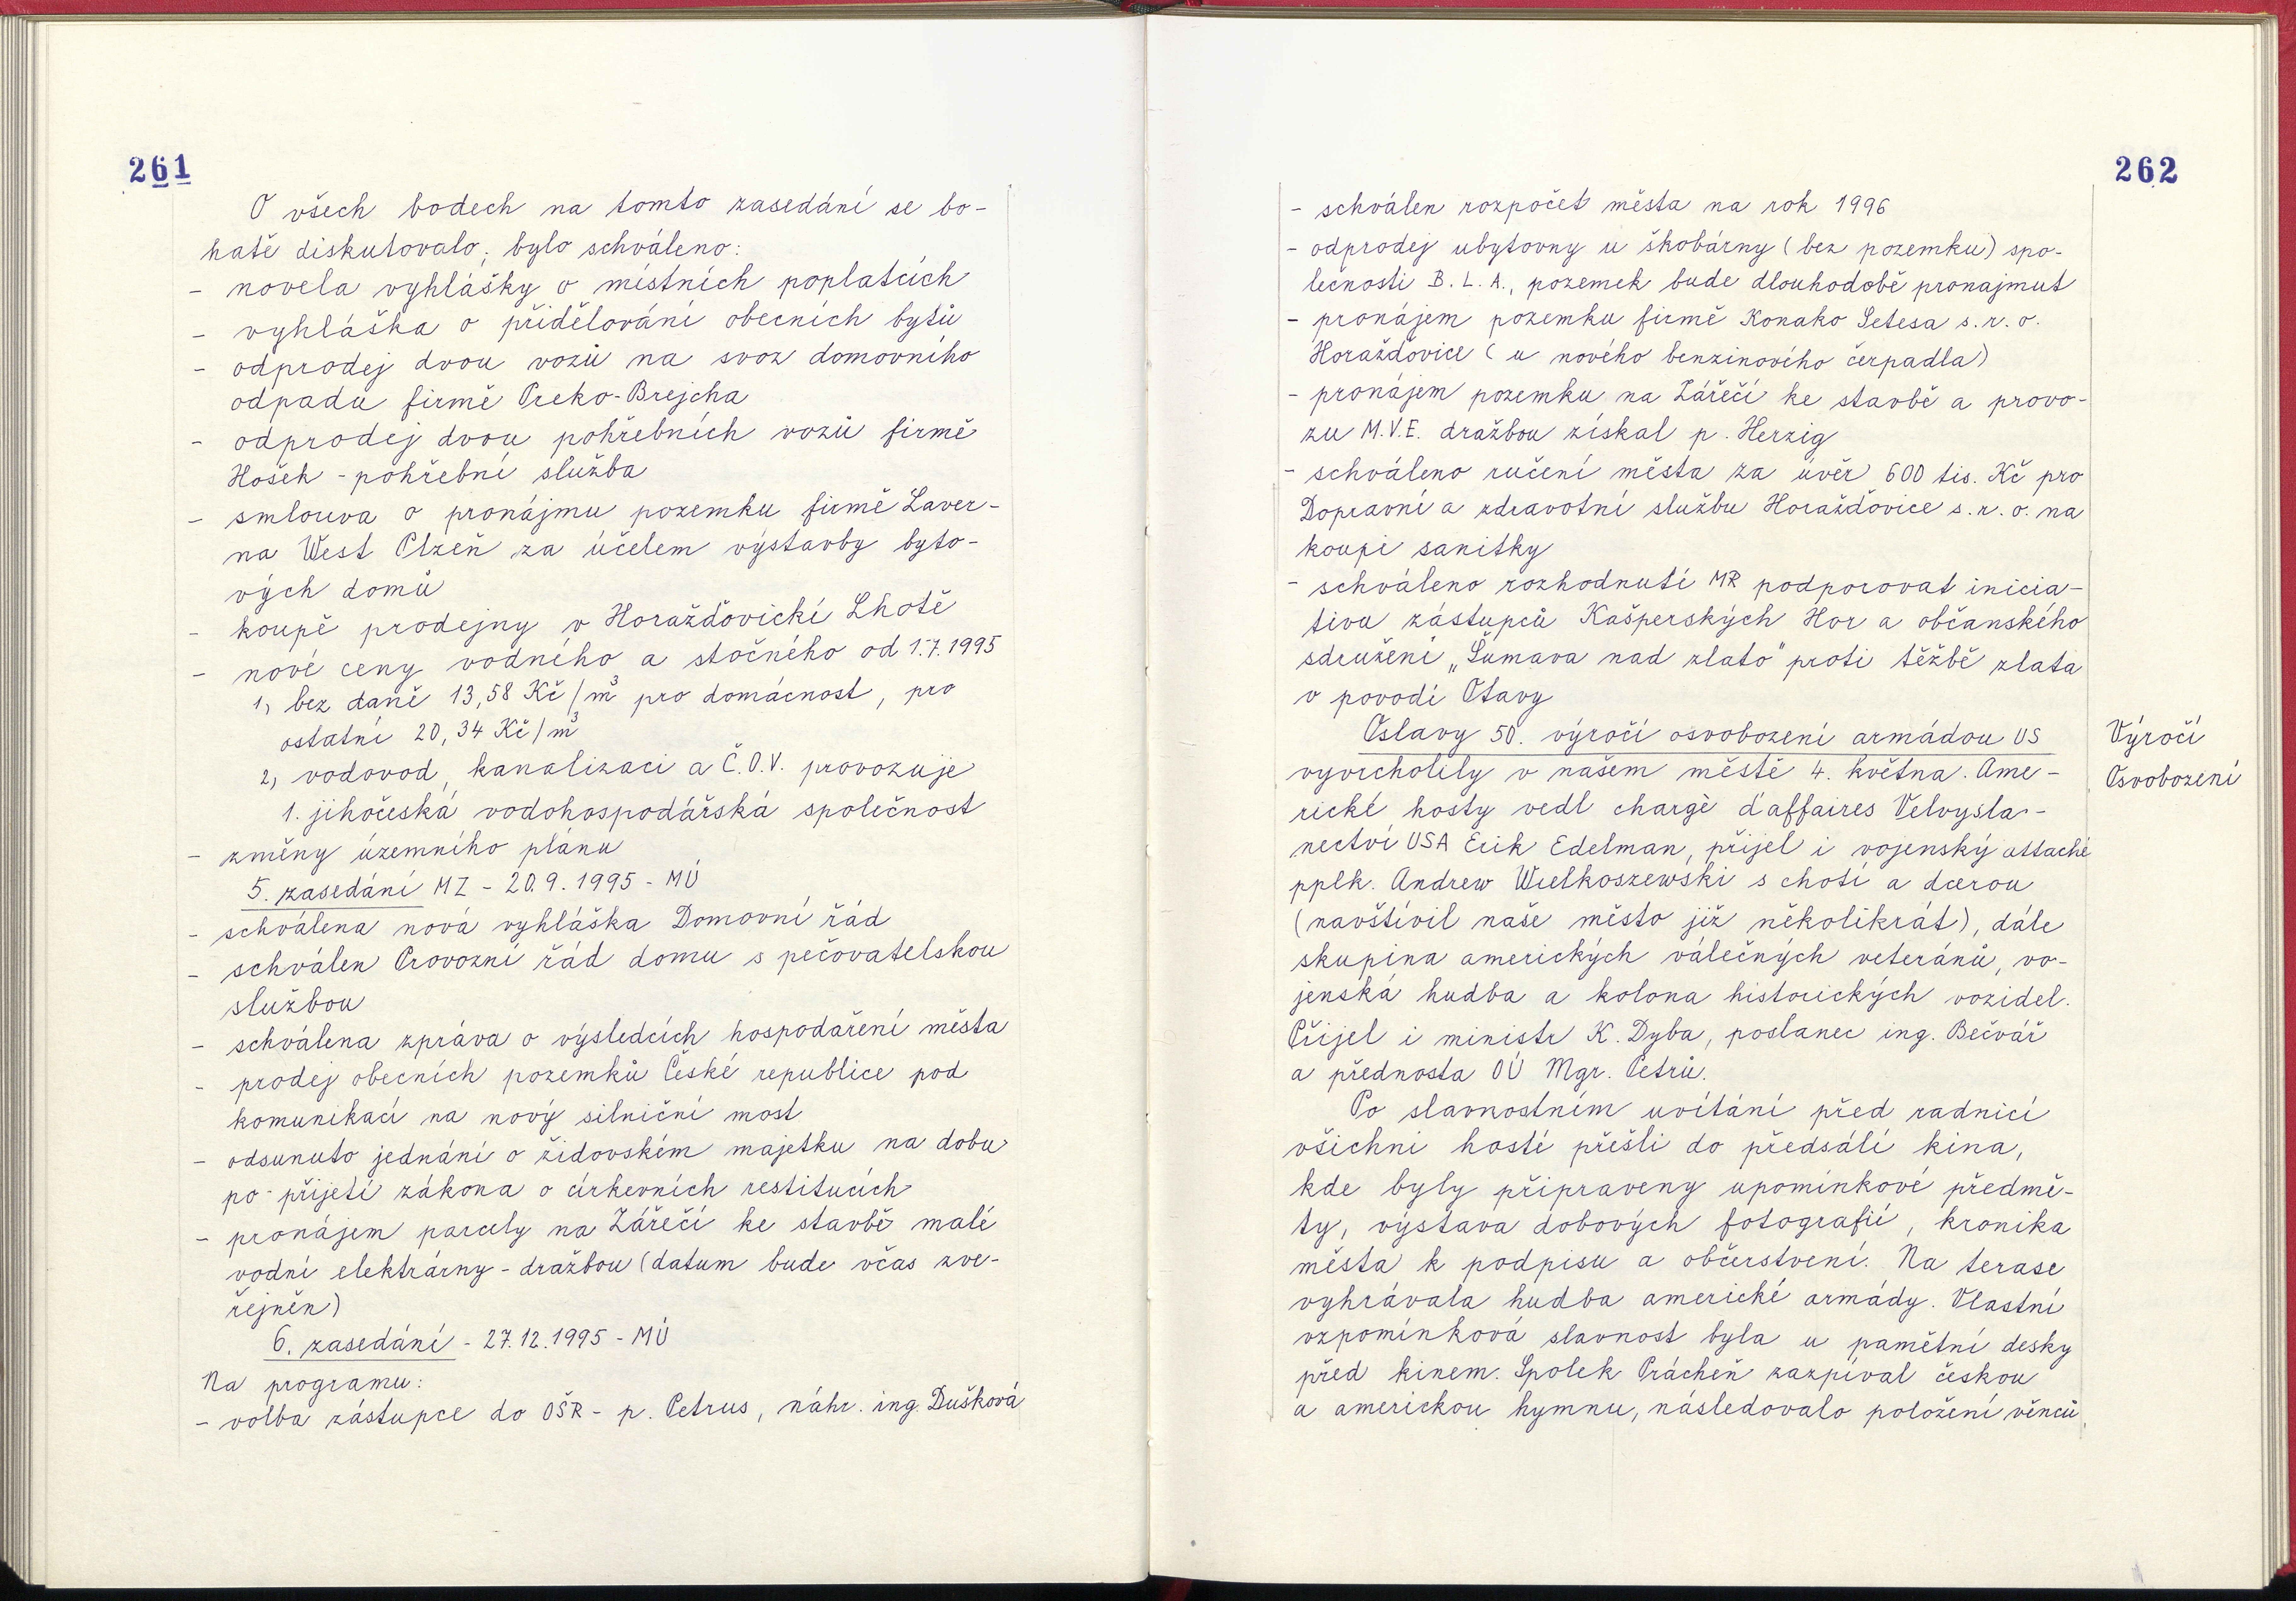 261
O všech bodech na tomto zasedání se bo-
hatě diskutovalo; bylo schváleno:
- novela vyhlášky o místních poplatcích
- vyhláška o přidělování obecních bytů
- odprodej dvou vozů na svoz domovního
odpadu firmě Preko-Brejcha
- odprodej dvou pohřebních vozů firmě
Hošek - pohřební služba
- smlouva o pronájmu pozemku firmě Laver-
na West Plzeň za účelem výstavby byto-
vých domů
- koupě prodejny v Horažďovické Lhotě
- nové ceny vodného a stočného od 1.7.1995
1, bez daně 13,58 Kč/m³ pro domácnost, pro
ostatní 20,34 Kč/m³
2, vodovod, kanalizaci a Č.O.V. provozuje
1. jihočeská vodohospodářská společnost
- změny územního plánu
5. zasedání MZ - 20.9.1995 - MÚ
- schválena nová vyhláška Domovní řád
- schválen Provozní řád domu s pečovatelskou
službou
- schválena zpráva o výsledcích hospodaření města
- prodej obecních pozemků České republice pod
komunikací na nový silniční most
- odsunuto jednání o židovském majetku na dobu
po přijetí zákona o církevních restitucích
- pronájem parcely na Zářečí ke stavbě malé
vodní elektrárny - dražbou (datum bude včas zve-
řejněn)
6. zasedání - 27.12.1995 - MÚ
Na programu:
- volba zástupce do OŠR - p. Petrus, náhr. ing. Dušková
262
- schválen rozpočet města na rok 1996
- odprodej ubytovny u škobárny (bez pozemku) spo-
lečnosti B.L.A., pozemek bude dlouhodobě pronajmut
- pronájem pozemku firmě Konako Setesa s.r.o.
Horažďovice (u nového benzinového čerpadla)
- pronájem pozemku na Zářečí ke stavbě a provo-
zu M.V.E. dražbou získal p. Herzig
- schváleno ručení města za úvěr 600 tis. Kč pro
Dopravní a zdravotní službu Horažďovice s.r.o. na
koupi sanitky
- schváleno rozhodnutí MR podporovat inicia-
tivu zástupců Kašperských Hor a občanského
sdružení „Šumava nad zlato" proti těžbě zlata
v povodí Otavy
Oslavy 50. výročí osvobození armádou US
Výročí
vyvrcholily v našem městě 4. května. Ame-
Osvobození
rické hosty vedl chargè d'affaires Velvysla-
nectví USA Erik Edelman, přijel i vojenský attaché
pplk. Andrew Wielkoszewski s chotí a dcerou
(navštívil naše město již několikrát), dále
skupina amerických válečných veteránů, vo-
jenská hudba a kolona historických vozidel.
Přijel i ministr K. Dyba, poslanec ing. Bečvář
a přednosta OÚ Mgr. Petrů.
Po slavnostním uvítání před radnicí
všichni hosté přešli do předsálí kina,
kde byly připraveny upomínkové předmě-
ty, výstava dobových fotografií, kronika
města k podpisu a občerstvení. Na terase
vyhrávala hudba americké armády. Vlastní
vzpomínková slavnost byla u pamětní desky
před kinem. Spolek Prácheň zazpíval českou
a americkou hymnu, následovalo položení věnců